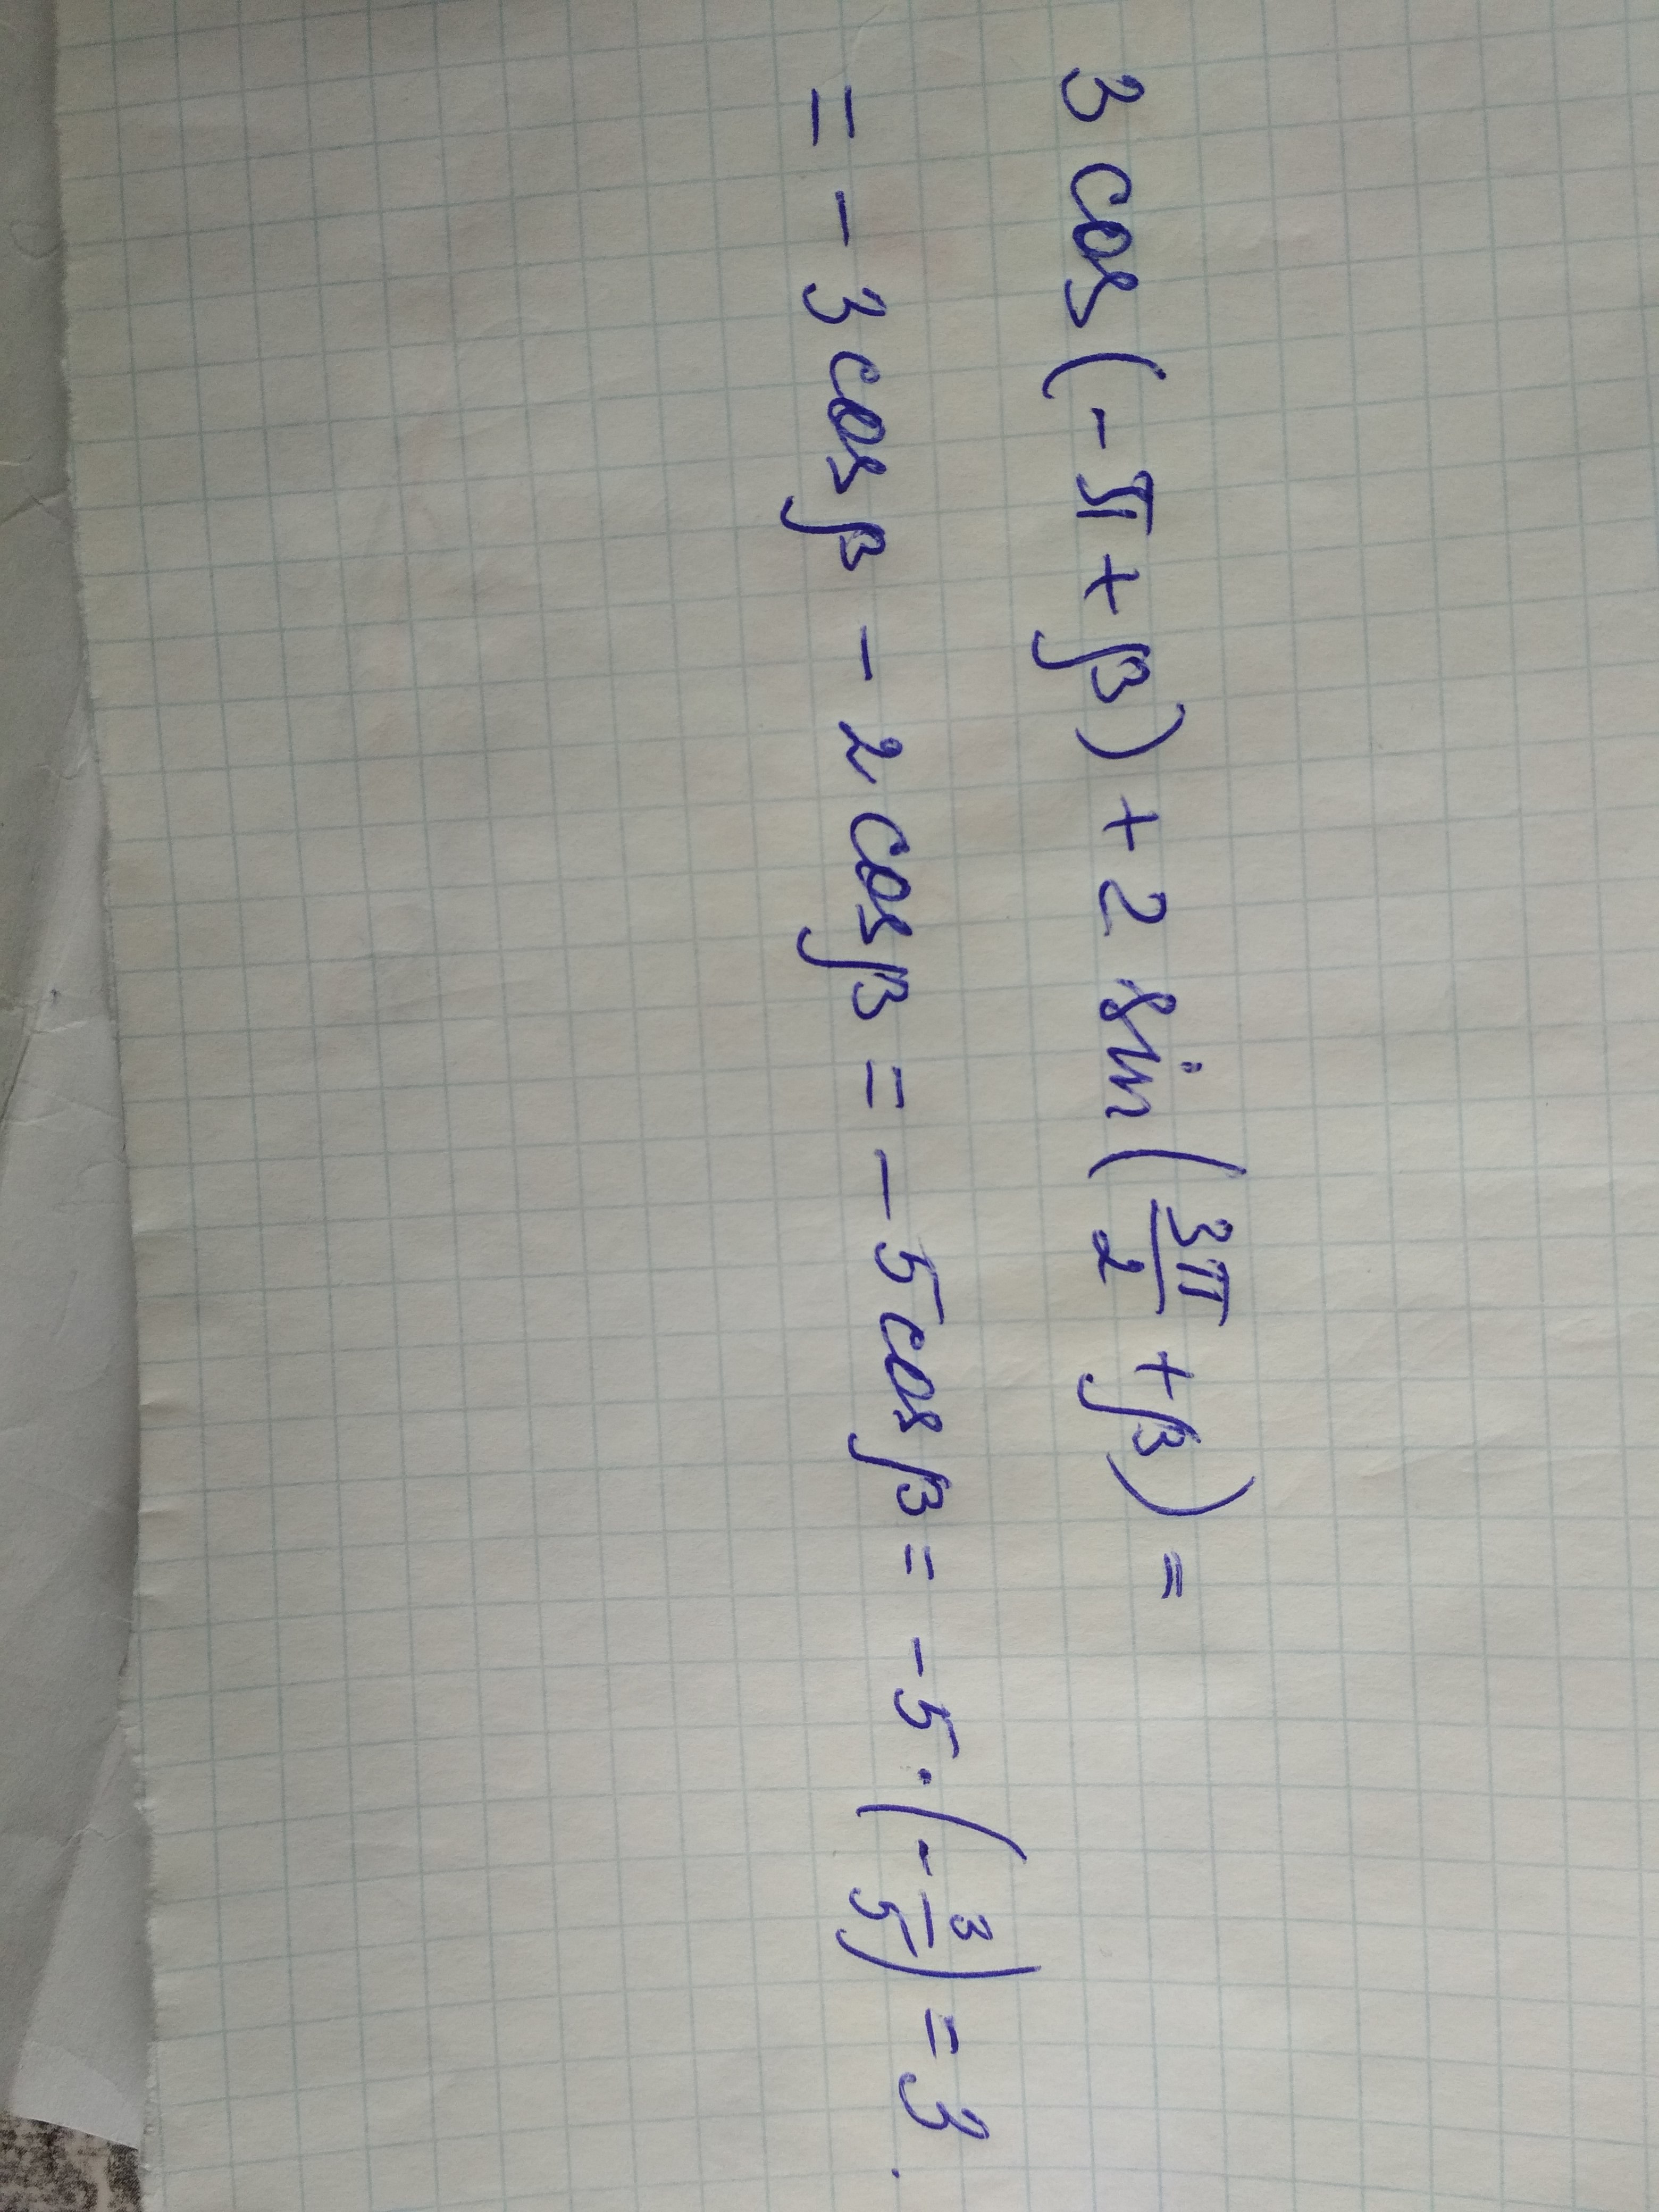 3 cos(-π + β) + 2 sin(3π/2 + β) =
= - 3 cosβ - 2 cosβ = - 5 cosβ = -5 · (-3/5) = 3.